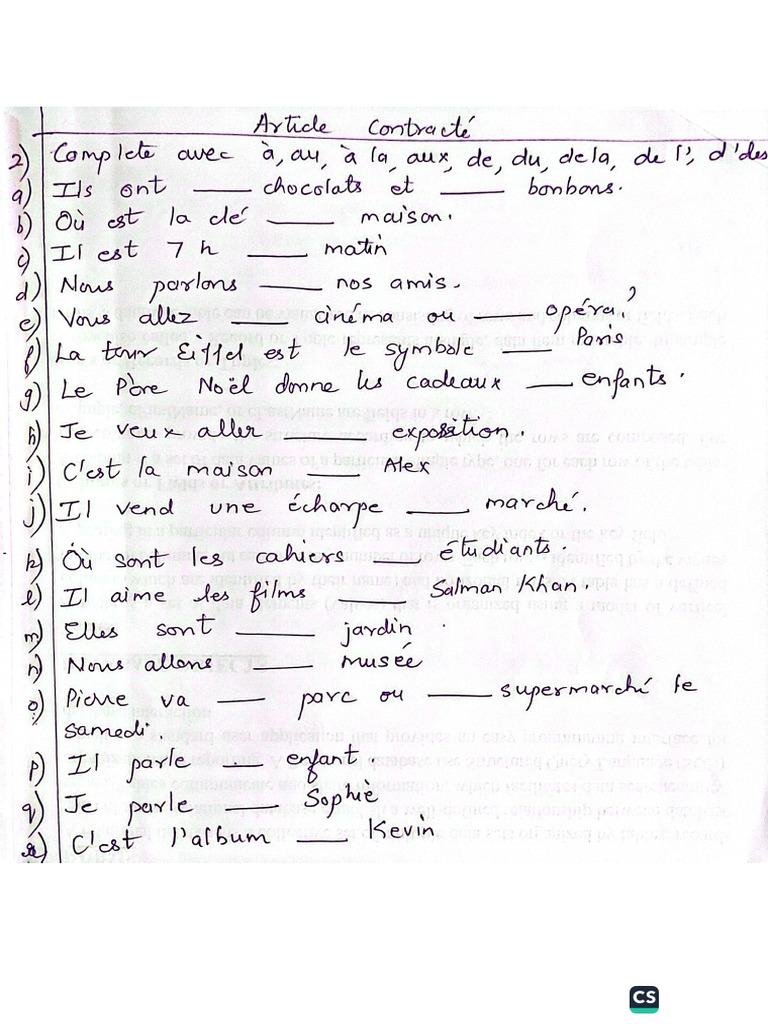 Article Contracté
2) Complete avec à, au, à la, aux, de, du, de la, de l', d' des
a) Ils ont ____ chocolats et ____ bonbons.
b) Où est la clé ____ maison.
c) Il est 7 h ____ matin
d) Nous parlons ____ nos amis.
e) Vous allez ____ cinéma ou ____ opéra,?
f) La tour Eiffel est le symbole ____ Paris
g) Le Père Noël donne les cadeaux ____ enfants.
h) Je veux aller ____ exposition.
i) C'est la maison ____ Alex
j) Il vend une écharpe ____ marché.
k) Où sont les cahiers ____ étudiants.
l) Il aime les films ____ Salman Khan.
m) Elles sont ____ jardin.
n) Nous allons ____ musée
o) Pierre va ____ parc ou ____ supermarché le
samedi.
p) Il parle ____ enfant.
q) Je parle ____ Sophie
r) C'est l'album ____ Kevin
CS